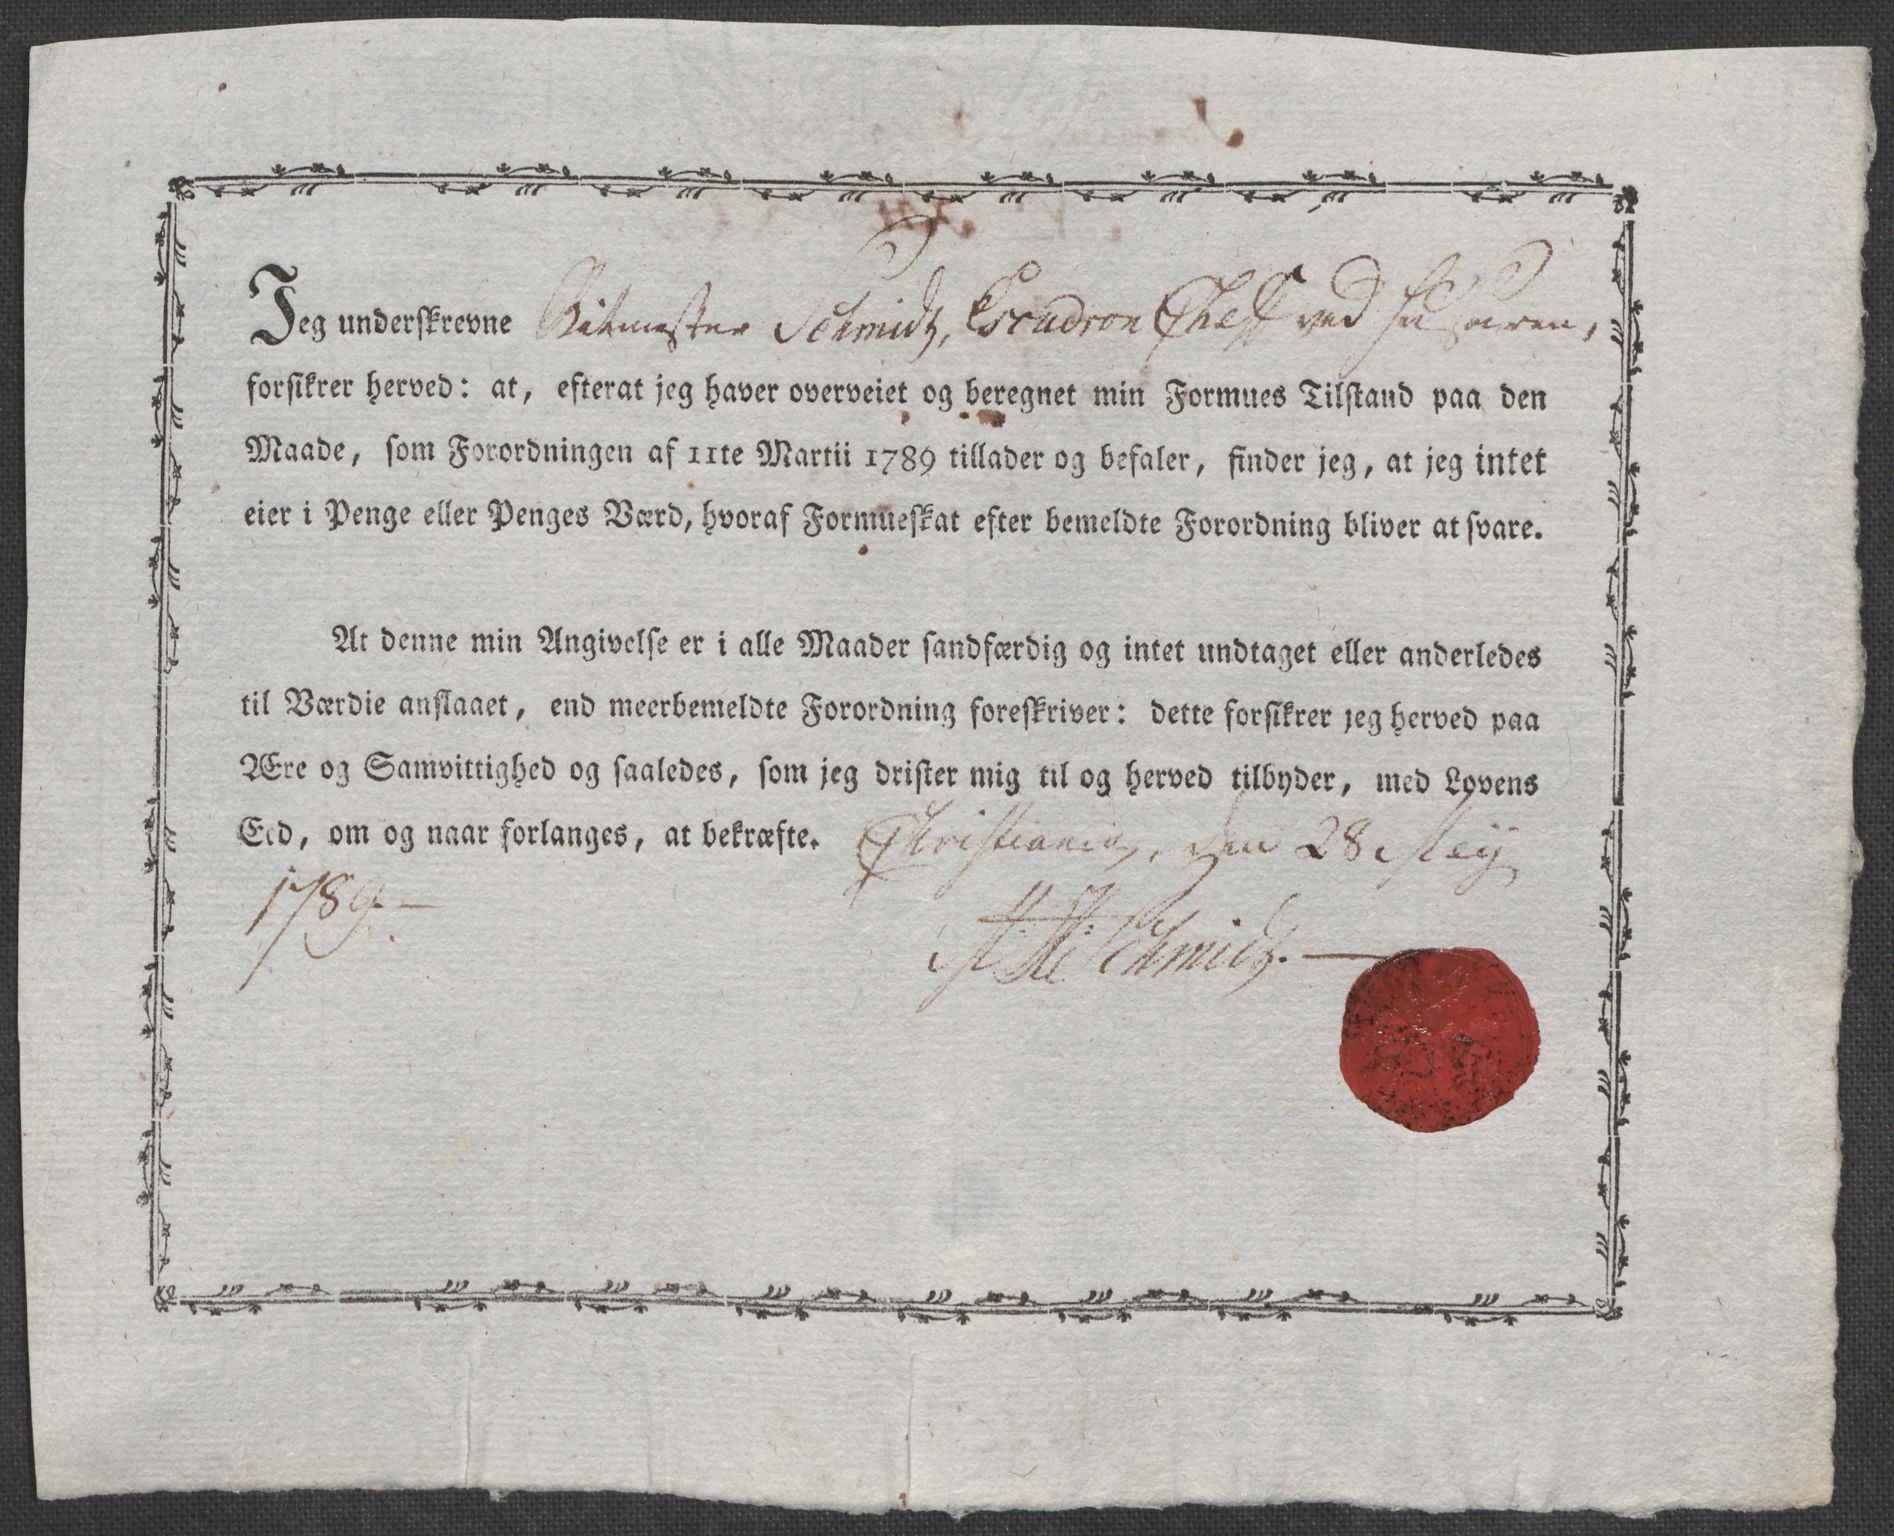 Jeg underskrevne Ritmester Schmidt, Escadron Cheff ved Husaren,
forsikrer herved: at, efterat jeg haver overveiet og beregnet min Formues Tilstand paa den
Maade, som Forordningen af 11te Martii 1789 tillader og befaler, finder jeg, at jeg intet
eier i Penge eller Penges Værd, hvoraf Formueskat efter bemeldte Forordning bliver at svare.
At denne min Angivelse er i alle Maader sandfærdig og intet undtaget eller anderledes
til Værdie anslaaet, end meerbemeldte Forordning foreskriver: dette forsikrer jeg herved paa
Ære og Samvittighed og saaledes, som jeg drister mig til og herved tilbyder, med Lovens
Eed, om og naar forlanges, at bekræfte. Christiania, den 28 Meÿ
1789.—
Schmidt.—